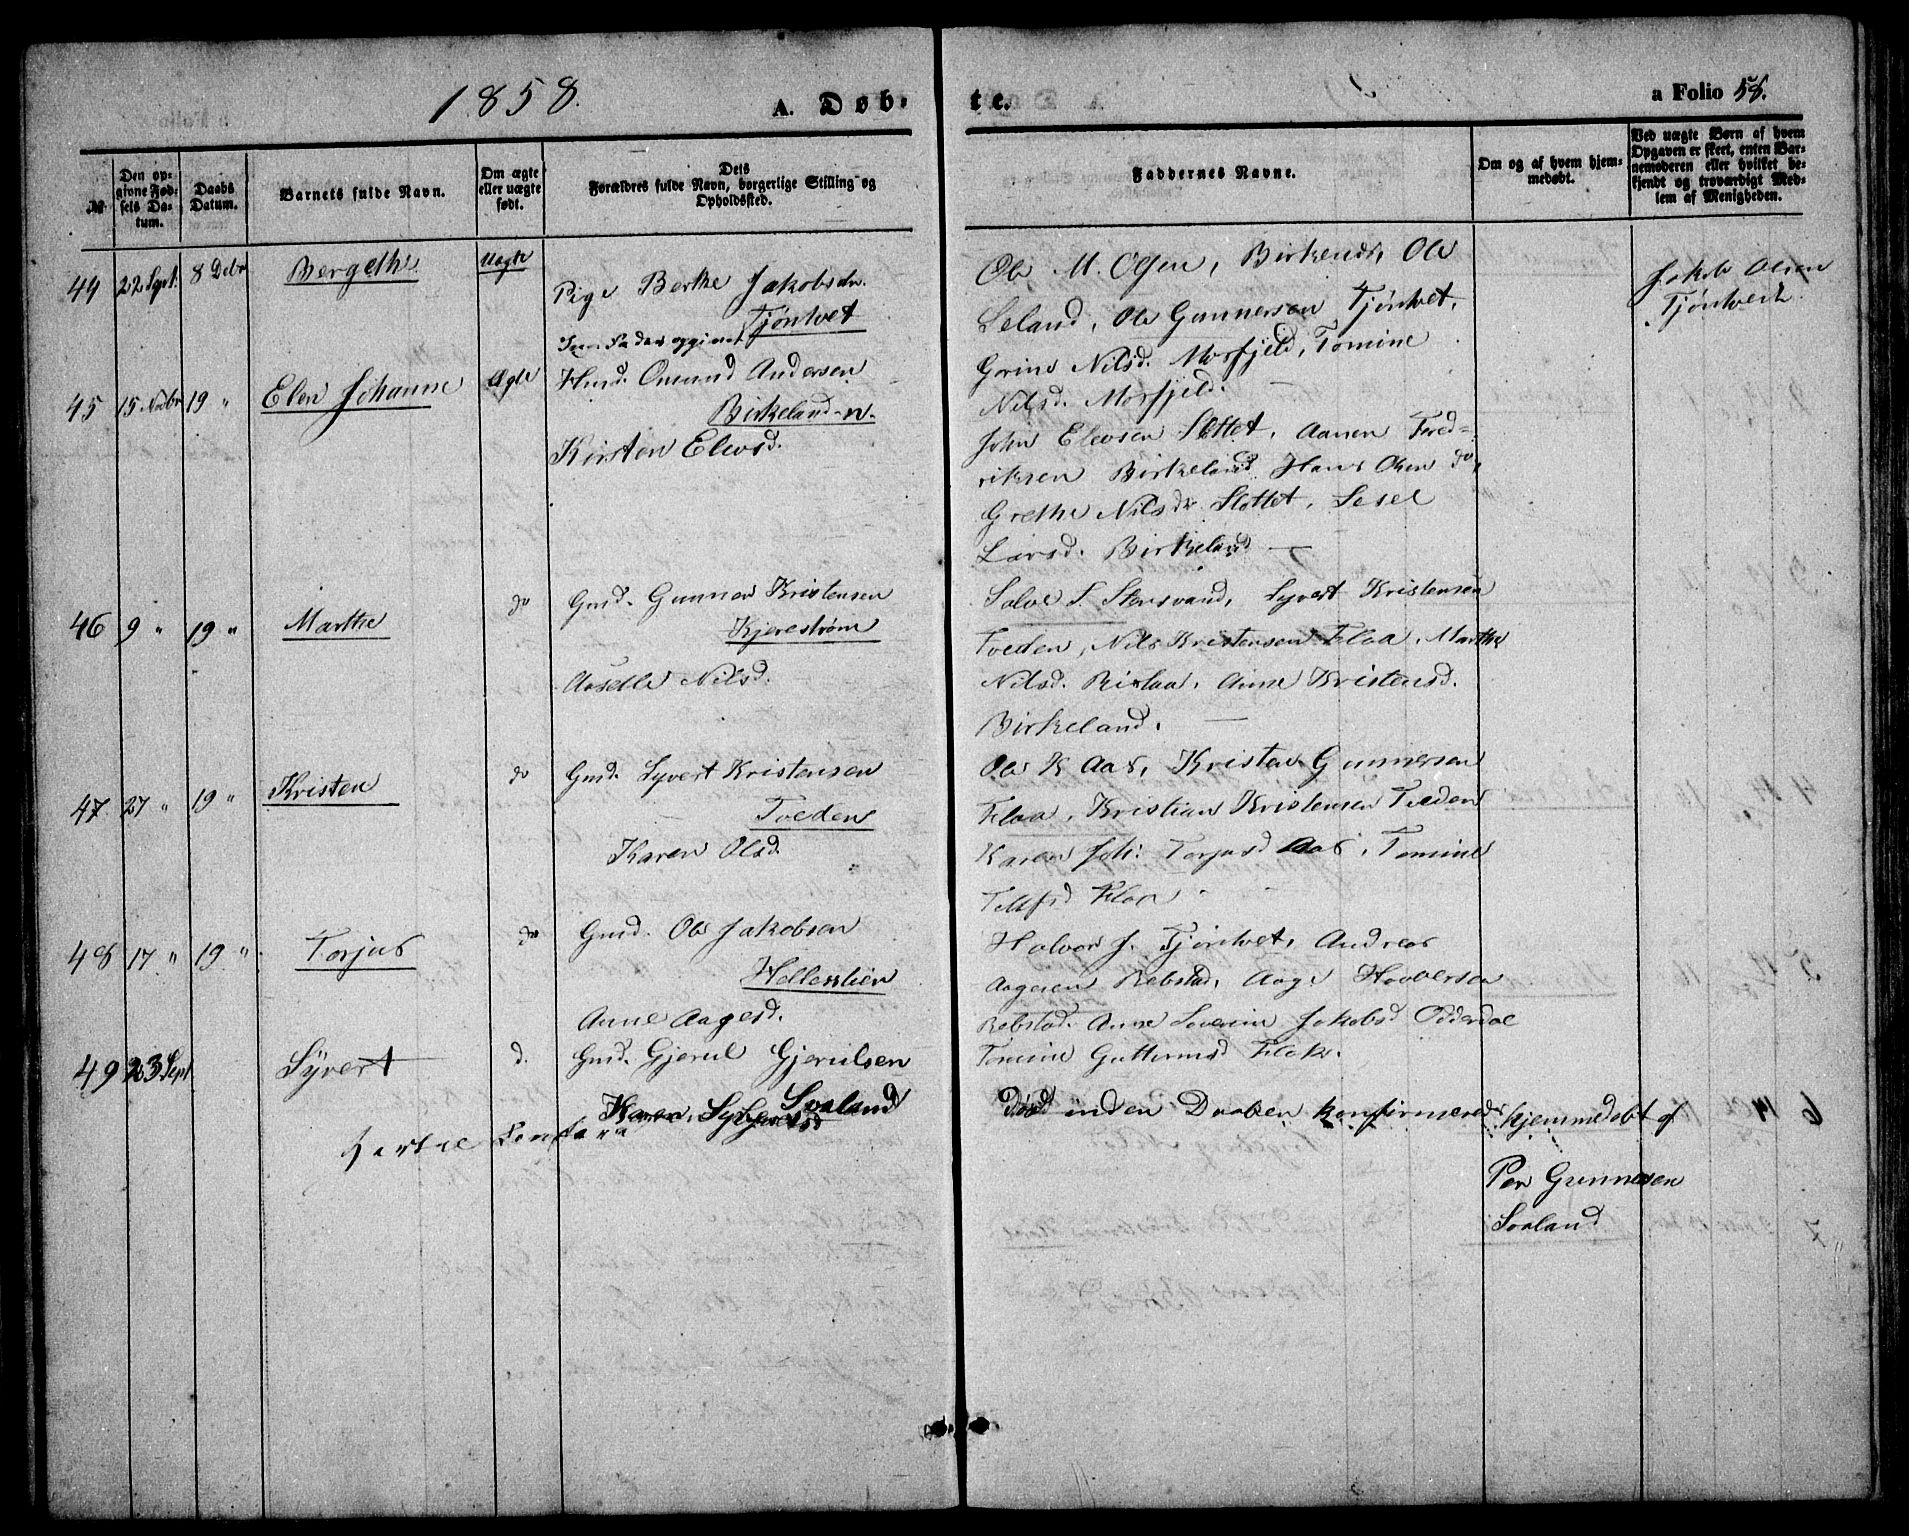 1858.
A. Døb-
te.
a Folio 58.
№
Den op-
givne Fød-
sels Da-
tum.
Daabs
Datum.
Barnets fulde Navn.
Om ægte
eller uægte
født.
Dets
Forældres fulde Navn, borgerlige Stilling og
Opholdssted.
Faddernes Navne.
Om og af hvem hjem-
medøbt.
Ved uægte Børn af hvem
Opgaven er skeet, enten Bar-
nemoderen eller hvilket be-
kjendt og troværdigt Med-
lem af Menigheden.
44 22 Sept. 8 Debr Bergethe Uægte
Pige Berthe Jakobsdr.
Tjøntvet
som Fader opgivet
Ole M. Olsen, Birkenes, Ole
Leland, Ole Gunnersen Tjøntvet,
Gorine Nilsd. Mosfjeld, Tomine
Nilsd. Mosfjeld.
Jakob Olsen
Tjøntveit
45 15 Novbr 19 " Elen Johanne Ægte
Husd. Omund Andersen
Birkeland - n.
Kirsten Elevsd.
John Elevsen Slottet, Aanen Fred-
riksen Birkeland Hans Olsen do,
Grethe Nilsdr Slottet, Sesel
Larsd. Birkeland
46 9 " 19 " Marthe do
Gmd. Gunner Kristensen
Kjerestrøm
Aaselle Nilsd.
Salve S. Stensvand, Syvert Kristensen
Tveden, Nils Kristensen Flaa, Marthe
Nilsd. Rislaa, Anne Kristensd.
Birkeland.
47 27 " 19 " Kristen do
Gmd. Syvert Kristensen
Tveden
Karen Olsd.
Ole K Aas, Kristen Gunnersen
Flaa, Kristian Kristensen Tveden
Karen Joh: Torjusd Aas, Tomine
Tellefsd Flaa
48 17 " 19 " Torjus do
Gmd. Ole Jakobsen
Helleslien
Anne Aagesd.
Halvor J. Tjøntvet, Andreas
Aagesen Rebstad, Aage Hovversen
Rebstad. Anne Severine Jakobsd Odderdal
Tomine Guttormsd Flak.
49 23 Sept Syvert d.
Gmd. Gjerul Gjerulsen
Svaland
Karen Syvertsd
Død inden Daaben konfirmeredes
hjemmedøbt af
Per Gunnersen
Svaland